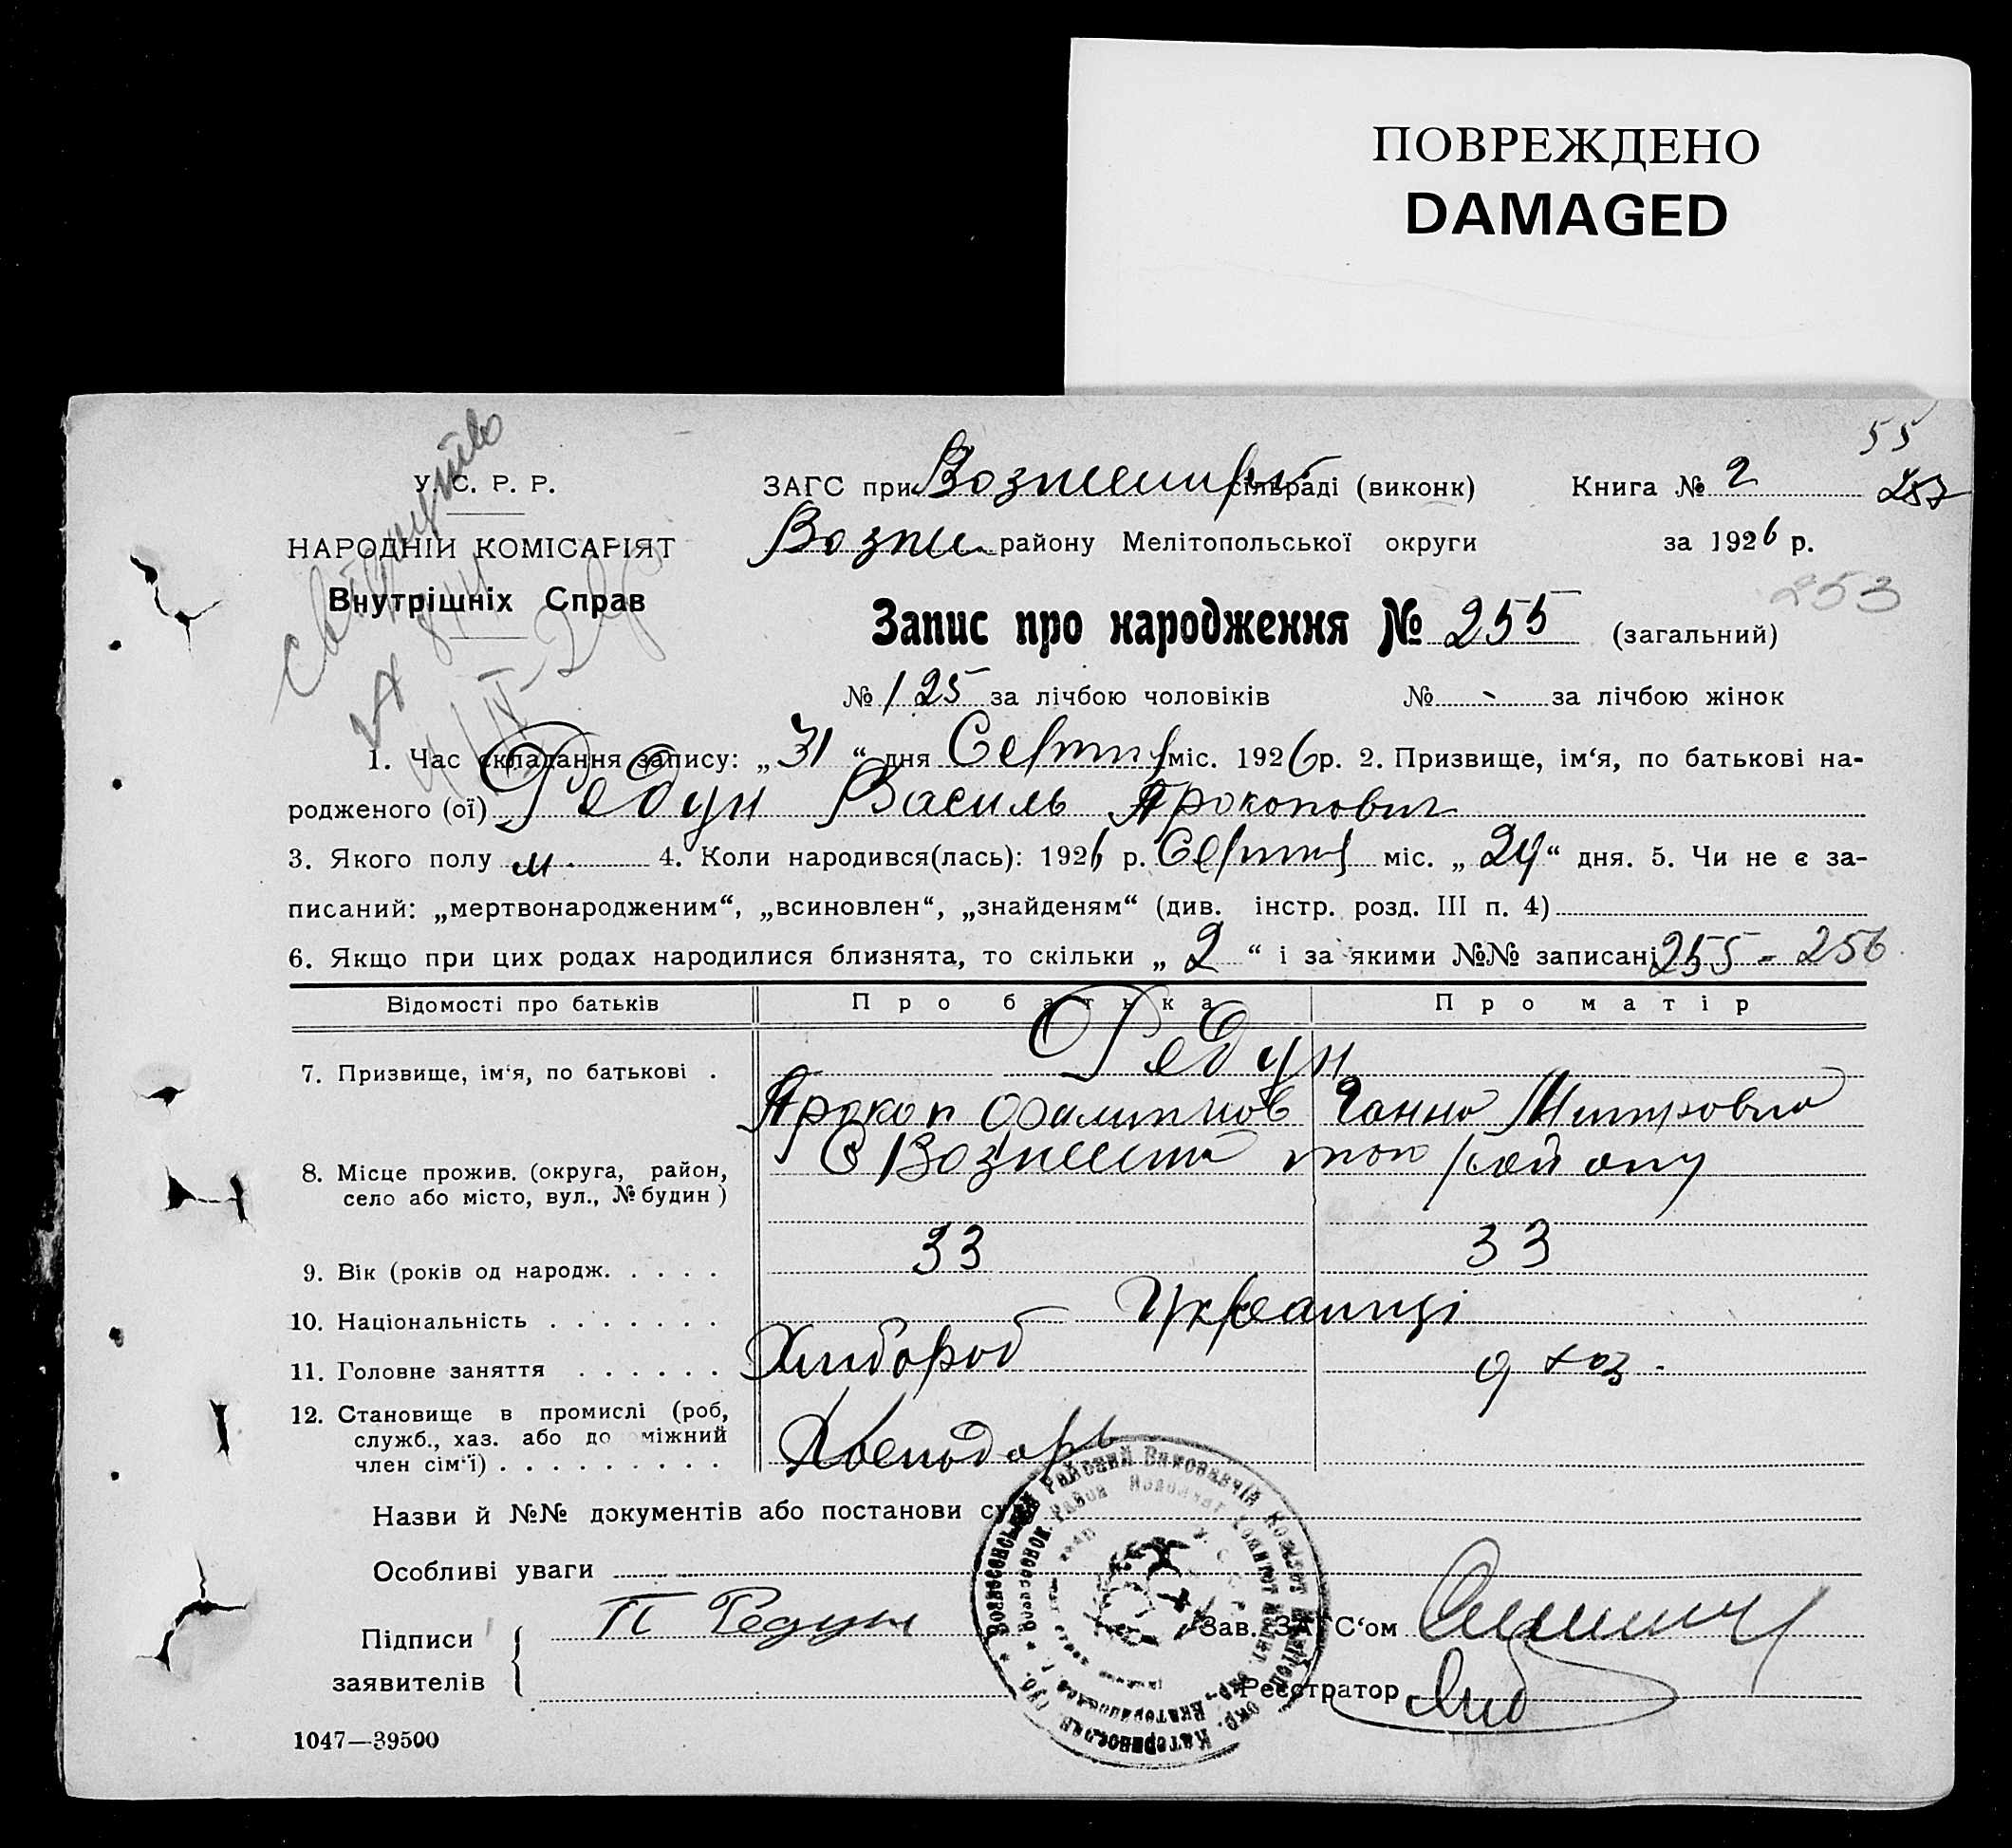 ПОВРЕЖДЕНО
DAMAGED
55
У. С. Р. Р.
ЗАГС при сільраді (виконк)
Книга № 2
257
НАРОДНІЙ КОМІСАРІЯТ
Возне району Мелітопольської округи
за 1926 р.
Внутрішніх Справ
253
Запис про народження № 255 (загальний)
№ 125 за лічбою чоловіків № - за лічбою жінок
1. Час складання запису: „31“ дня Серпня міс. 1926 р. 2. Призвище, ім‘я, по батькові на-
родженого (ої) Редун Василь Прокопович
3. Якого полу м. 4. Коли народився(лась): 1926 р. Серпня міс. „24“ дня. 5. Чи не є за-
писаний: „мертвонародженим“, „всиновлен“, „знайденям“ (див. інстр. розд. III п. 4)
6. Якщо при цих родах народилися близнята, то скільки „2“ і за якими №№ записані 255 - 256
Відомості про батьків Про батька Про матір
7. Призвище, ім‘я, по батькові . Редун
Прокоп Ганна Митровна
8. Місце прожив. (округа, район,
село або місто, вул., № будин)
С Вознесенка того району
9. Вік (років од народж. . . . . 33 33
10. Національність . . . . . . . Українці
11. Головне заняття . . . . . . Хлибороб д хоз.
12. Становище в промислі (роб,
служб., хаз. або допоміжний
член сім‘ї) . . . . . . . . . Господарь
Назви й №№ документів або постанови суду
Особливі уваги
Підписи
заявителів
П Редун
Зав. ЗАГС‘ом
Реєстратор
1047—39500